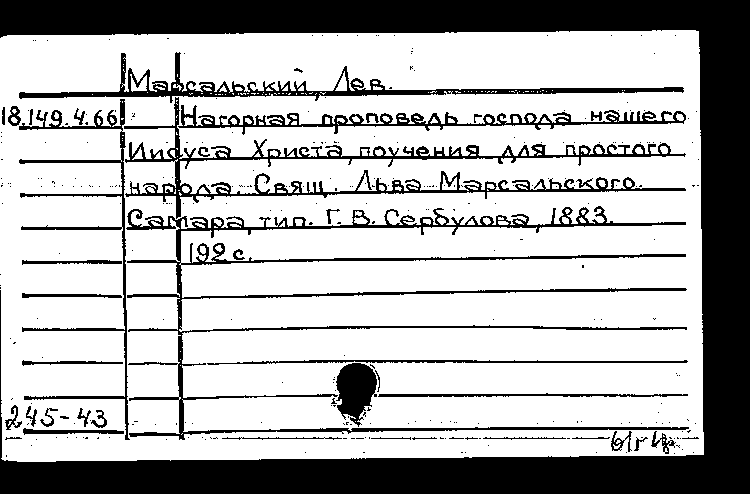 Марсальский, Лев.
18.149.4.66 Нагорная проповедь господа нашего
Иисуса Христа, поучения для простого
народа. Свящ. Льва Марсальского.
Самара, тип. Г. В. Сербулова, 1883.
192 с.
245-43